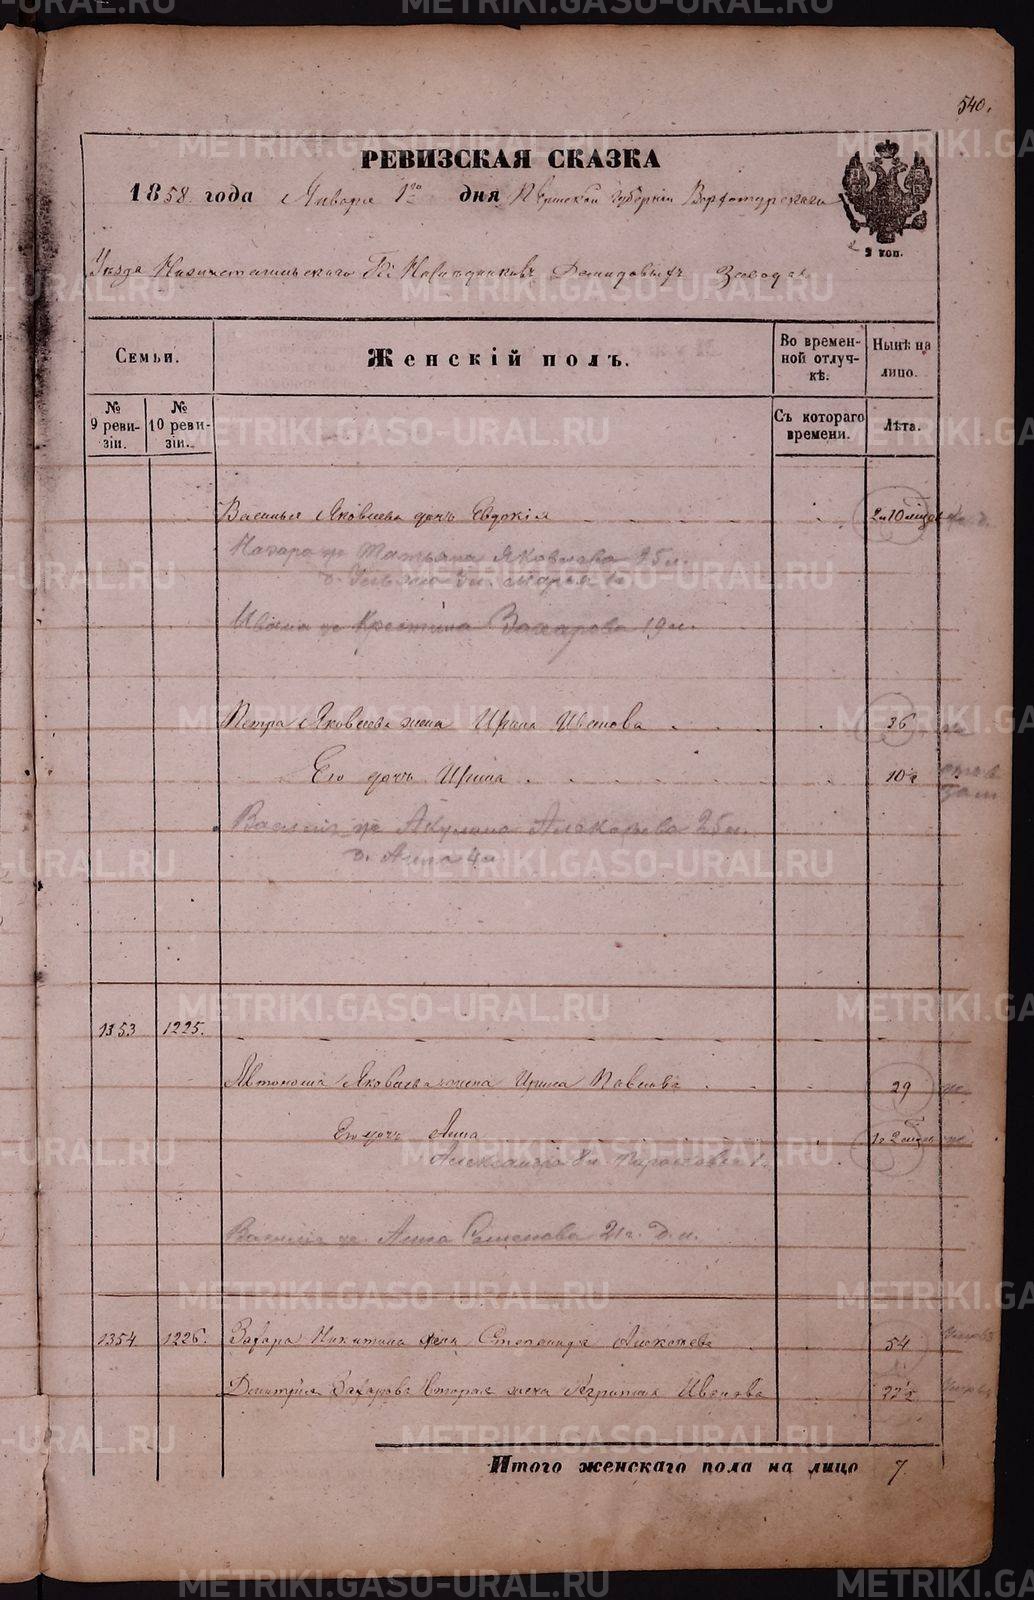 540.
РЕВИЗСКАЯ СКАЗКА
1858 года Января 1го дня Пермской губернiи Верхотурскаго
Уезда Нижнетагильскаго Гг. Наследниковъ Демидовыхъ Завода
2 коп.
Семьи.
Женскiй полъ.
Во временной отлучкѣ.
Нынѣ на лицо.
№ 9 ревизiи.
№ 10 ревизiи.
Съ котораго времени.
Лѣта.
Василья Яковлева дочь Евдокiя
Назара ж Татьяна Яковлева 25 л.
д. Ульяна 3 л. Марья 1
Ивана ж Крестина Захарова 19 л.
Петра Яковлева жена Ирина Иванова 36
Его дочь Ирина 10½
Василiя ж Акулина 25 л.
д. Анна 4 л
1353 1225.
Автонома Яковлева жена Ирина Павлова 29
Его дочь Анна
Александра 8 л Парасковья 1
Василiя ж. Анна Семенова 21 г.
1354 1226. Захара Никитина жена Степанида 54
Дмитрiя Захарова вторая жена Агрипина Иванова 22½
Итого женскаго пола на лицо 7.
METRIKI.GASO-URAL.RU